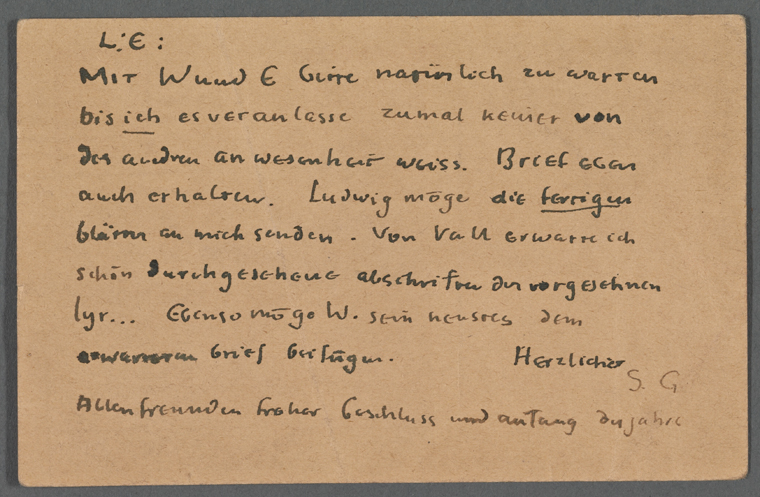 L: E:
Mit W und E bitte natürlich zu warten
bis ich es veranlasse zumal keiner von
des andren anwesenheit weiss. Brief eben
auch erhalten. Ludwig möge die fertigen
blätter an mich senden. Von Vall erwarte ich
schön durchgesehene abschriften der vorgesehnen
lyr... Ebenso möge W. sein neustes dem
erwarteten brief beifügen. Herzlichst
S. G.
Allen freunden froher beschluss und anfang der jahre